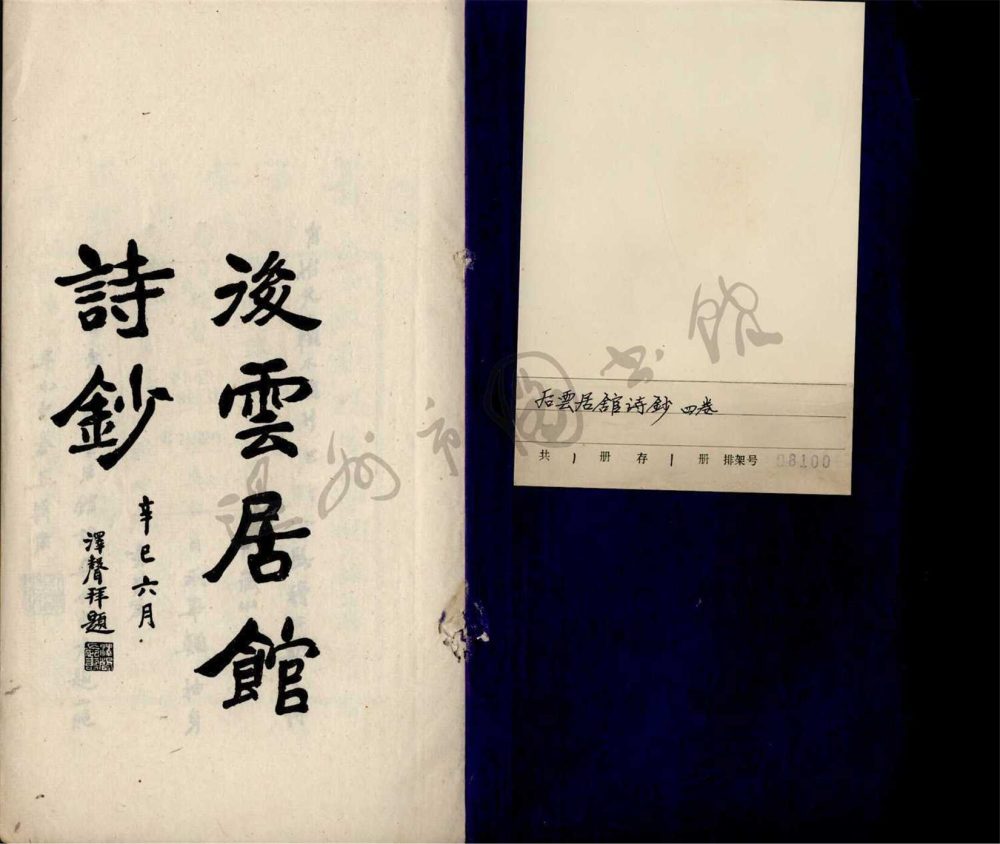 後雲居館
詩鈔
辛巳六月
澤聲拜題
后雲居舘诗鈔 四卷
共 1 册 存 1 册 排架号 08100
州市圖书館